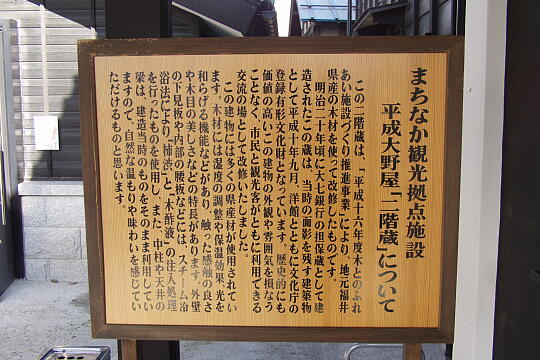 まちなか観光拠点施設
平成大野屋「二階蔵」について
この二階蔵は、「平成十六年度木とのふれ
あい施設づくり推進事業」により、地元福井
県産の木材を使って改修したものです。
明治二十年頃に大七銀行の担保蔵として建
造されたこの蔵は、当時の面影を残す建築物
として平成十年九月、洋館とともに文化庁の
登録有形文化財となっています。歴史的にも
価値の高いこの建物の外観や雰囲気を損なう
ことなく、市民と観光客がともに利用できる
交流の場として改修いたしました。
この建物には多くの県産材が使用されてい
ます。木材には湿度の調整や保温効果、光を
和らげる機能などがあり、触った感触の良さ
や木目の美しさなどの特長があります。外壁
の下見板や内部の腰板などには、スチーム冶
浴法により、「柿渋」と「木酢液」の注入処理
を行ったものを使用し、また、中柱や天井の
梁は、建造当時のものをそのまま利用してい
ますので、自然な温もりや味わいを感じてい
ただけるものと思います。